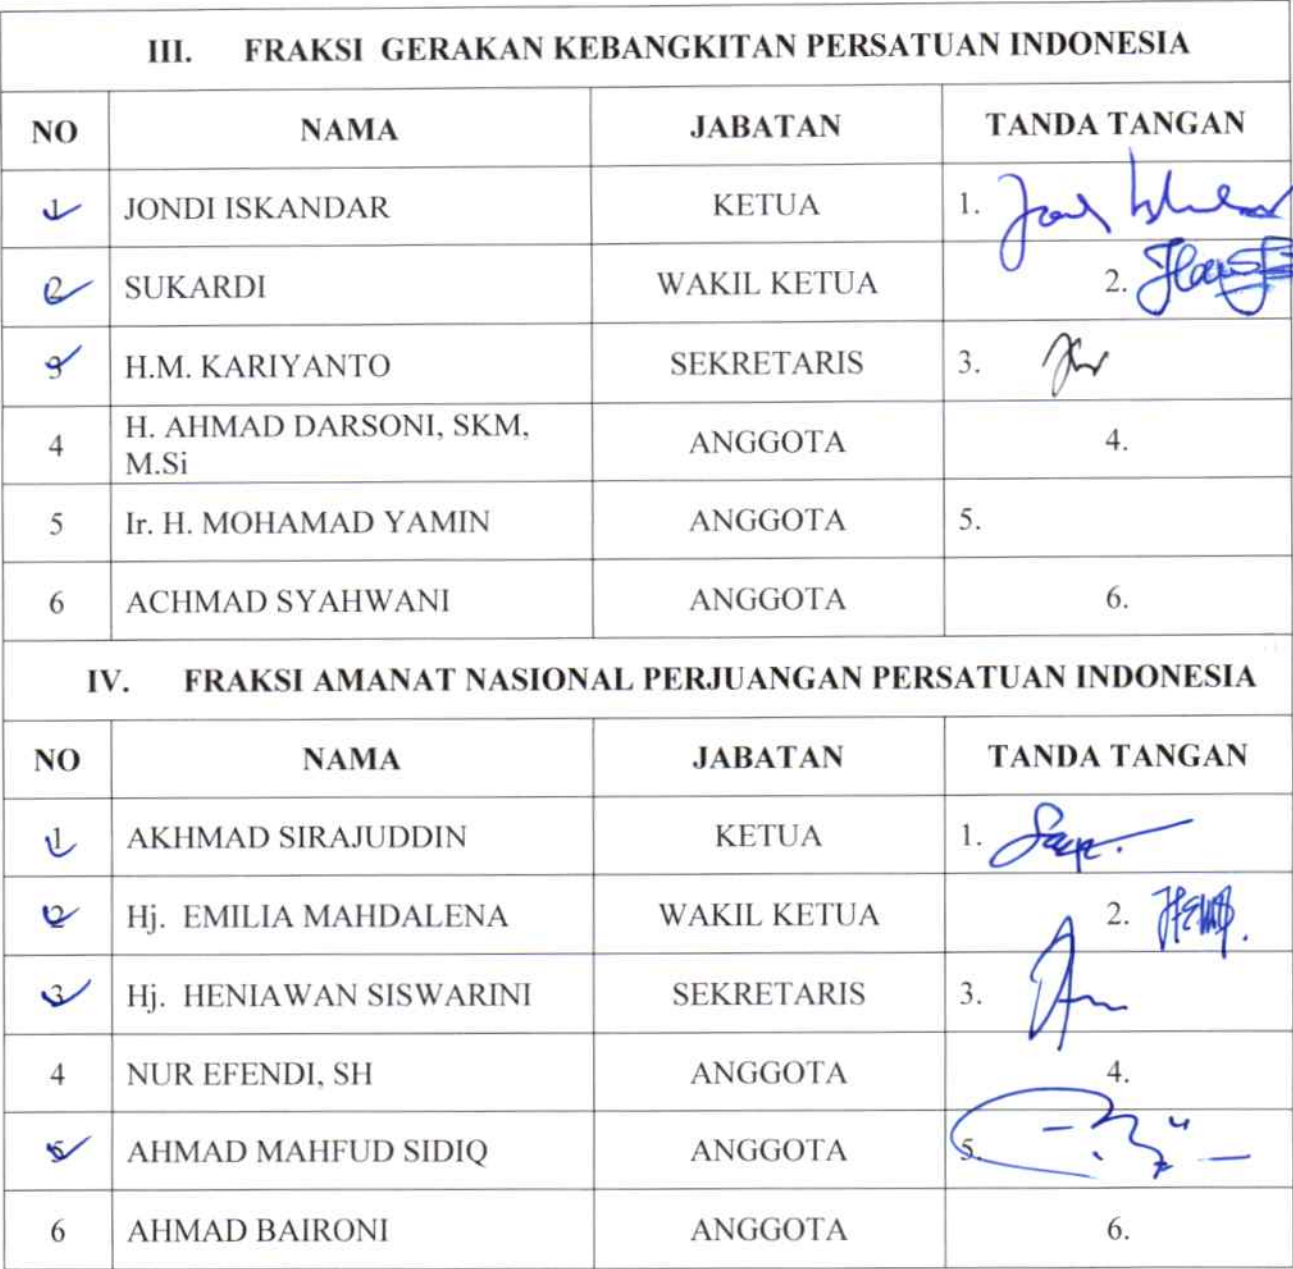 III. FRAKSI GERAKAN KEBANGKITAN PERSATUAN INDONESIA
NO NAMA JABATAN TANDA TANGAN
1 JONDI ISKANDAR KETUA 1.
2 SUKARDI WAKIL KETUA 2.
3 H.M. KARIYANTO SEKRETARIS 3.
4 H. AHMAD DARSONI, SKM,
M.Si ANGGOTA 4.
5 Ir. H. MOHAMAD YAMIN ANGGOTA 5.
6 ACHMAD SYAHWANI ANGGOTA 6.
IV. FRAKSI AMANAT NASIONAL PERJUANGAN PERSATUAN INDONESIA
NO NAMA JABATAN TANDA TANGAN
1 AKHMAD SIRAJUDDIN KETUA 1.
2 Hj. EMILIA MAHDALENA WAKIL KETUA 2.
3 Hj. HENIAWAN SISWARINI SEKRETARIS 3.
4 NUR EFENDI, SH ANGGOTA 4.
5 AHMAD MAHFUD SIDIQ ANGGOTA 5.
6 AHMAD BAIRONI ANGGOTA 6.